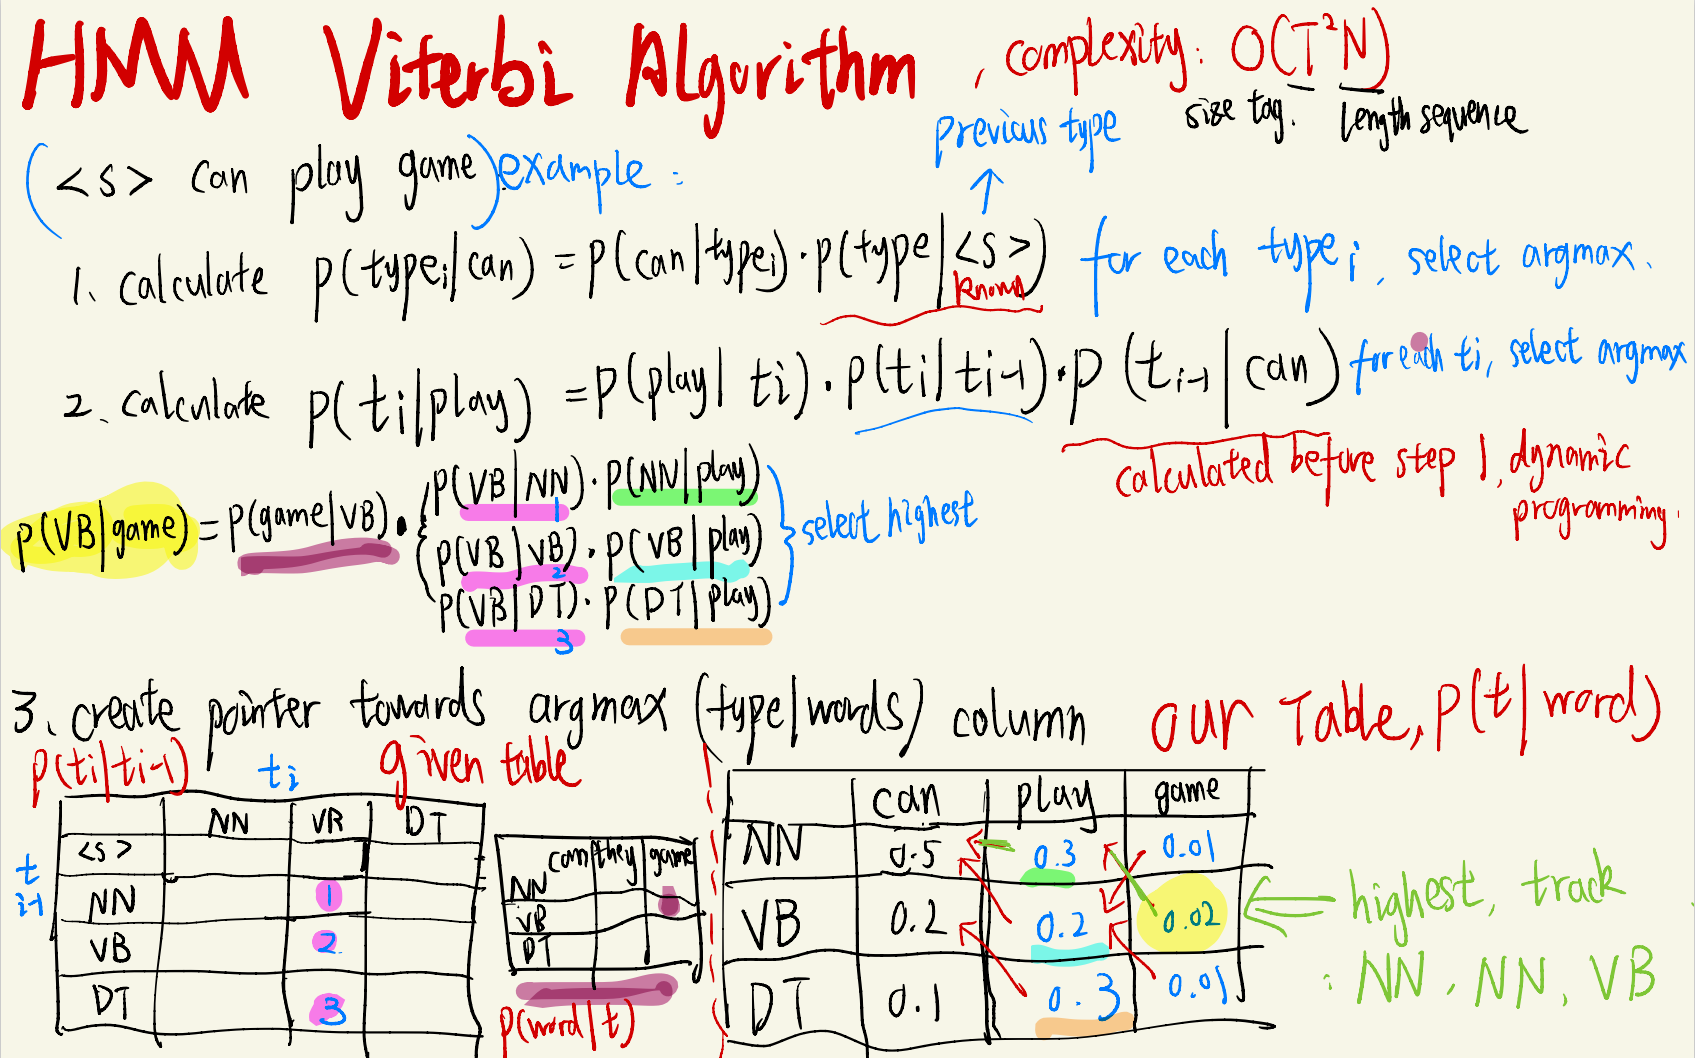 HMM Viterbi Algorithm , complexity: O(T²N)
size tag. length sequence
previous type
(<s> can play game) example :
1. calculate p(type_i|can) = p(can|type_i) · p(type|<s>) for each type_i, select argmax.
known
2. calculate p(t_i|play) = p(play|t_i) · p(t_i|t_i-1) · p(t_i-1|can) for each t_i, select argmax
calculated before step 1, dynamic
programming.
p(VB|game) = p(game|VB) · { p(VB|NN) · p(NN|play)
1
p(VB|VB) · p(VB|play)
2
p(VB|DT) · p(DT|play)
3
} select highest
3. create pointer towards argmax (type|words) column
our Table, p(t|word)
p(t_i|t_i-1) t_i given table
NN VB DT
<s>
t_i-1
NN 1
VB 2
DT 3
can they game
NN
VB
DT
p(word|t)
can play game
NN 0.5 0.3 0.01
VB 0.2 0.2 0.02
DT 0.1 0.3 0.01
highest, track
: NN, NN, VB